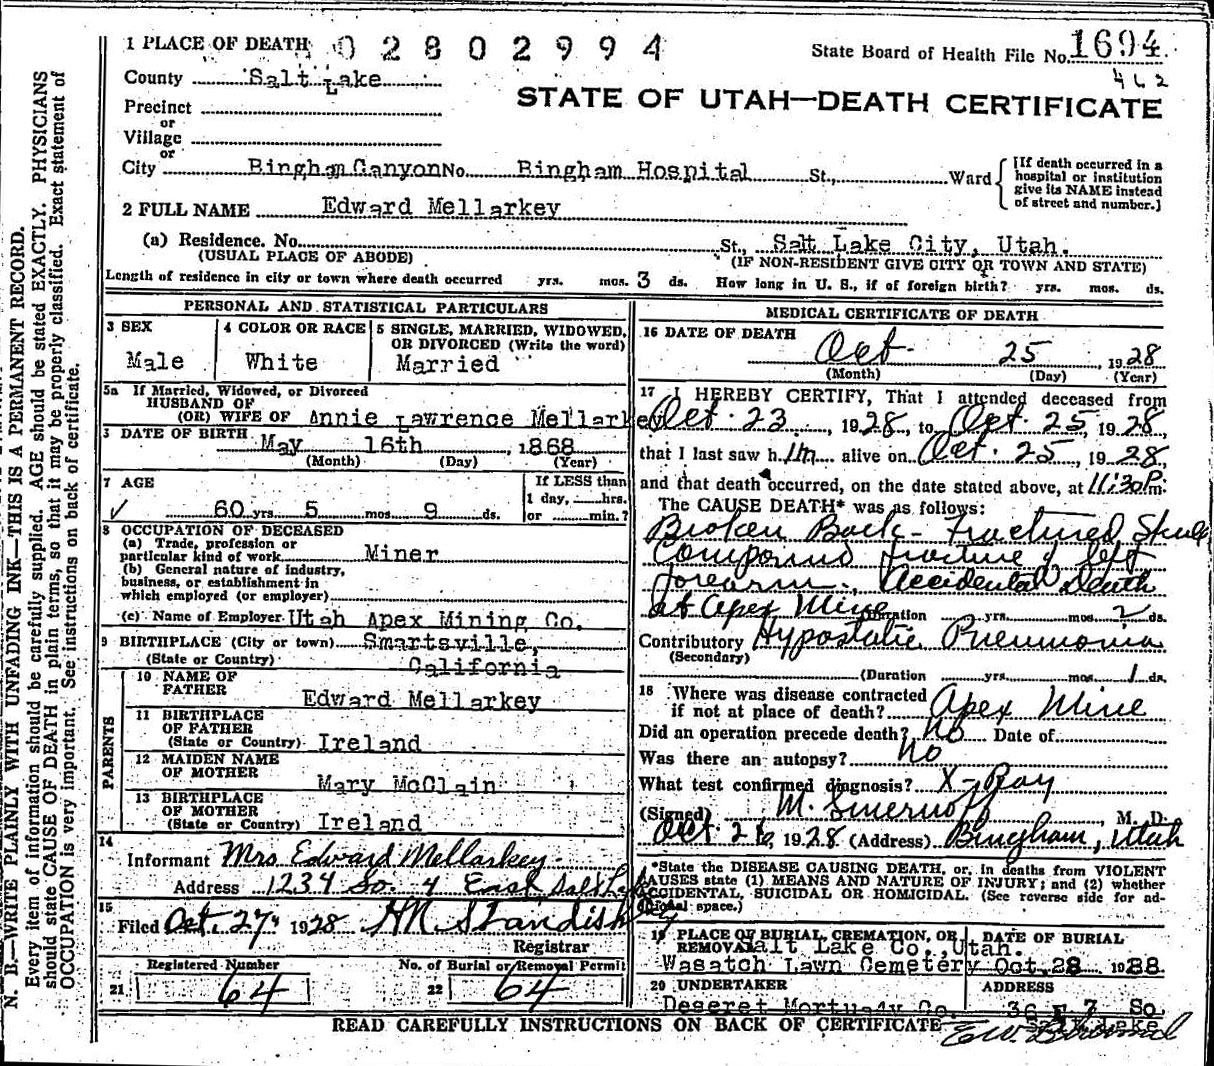 1 PLACE OF DEATH 0 2 8 0 2 9 9 4
State Board of Health File No. 1694
462
County Salt Lake
STATE OF UTAH—DEATH CERTIFICATE
Precinct
or
Village
or
City Bingham Canyon No. Bingham Hospital St., Ward
[If death occurred in a
hospital or institution
give its NAME instead
of street and number.]
2 FULL NAME Edward Mellarkey
(a) Residence. No. St., Salt Lake City, Utah.
(USUAL PLACE OF ABODE) (IF NON-RESIDENT GIVE CITY OR TOWN AND STATE)
Length of residence in city or town where death occurred yrs. mos. 3 ds. How long in U. S., if of foreign birth? yrs. mos. ds.
PERSONAL AND STATISTICAL PARTICULARS
3 SEX
Male
4 COLOR OR RACE
White
5 SINGLE, MARRIED, WIDOWED,
OR DIVORCED (Write the word)
Married
5a If Married, Widowed, or Divorced
HUSBAND OF
(OR) WIFE OF Annie Lawrence Mellarkey
DATE OF BIRTH May 16th, 1868
(Month) (Day) (Year)
7 AGE
If LESS than
1 day, hrs.
or min.?
✓ 60 yrs. 5 mos. 9 ds.
8 OCCUPATION OF DECEASED
(a) Trade, profession or
particular kind of work Miner
(b) General nature of industry,
business, or establishment in
which employed (or employer)
(c) Name of Employer Utah Apex Mining Co.
9 BIRTHPLACE (City or town) Smartsville,
(State or Country) California
PARENTS
10 NAME OF
FATHER Edward Mellarkey
11 BIRTHPLACE
OF FATHER
(State or Country) Ireland
12 MAIDEN NAME
OF MOTHER Mary McClain
13 BIRTHPLACE
OF MOTHER
(State or Country) Ireland
14
Informant Mrs Edward Mellarkey
Address 1234 So. 4 East Salt Lake
15
Filed Oct. 27, 1928 HM Standish
Registrar
Registered Number
21 64
No. of Burial or Removal Permit
22 64
MEDICAL CERTIFICATE OF DEATH
16 DATE OF DEATH
Oct. 25 1928
(Month) (Day) (Year)
17 I HEREBY CERTIFY, That I attended deceased from
Oct. 23, 1928, to Oct. 25, 1928,
that I last saw him alive on Oct. 25, 1928,
and that death occurred, on the date stated above, at 11:30 P.m.
The CAUSE DEATH* was as follows:
Broken Back - Fractured Skull
Compound fracture of left
forearm. Accidental Death
at Apex Mine Duration yrs. mos. 2 ds.
Contributory Hypostatic Pneumonia
(Secondary)
(Duration yrs. mos. 1 ds.
18 Where was disease contracted
if not at place of death? Apex Mine
Did an operation precede death? No Date of
Was there an autopsy? No
What test confirmed diagnosis? X-Ray
(Signed) M. Smernoff, M. D.
Oct. 26, 1928 (Address) Bingham, Utah
*State the DISEASE CAUSING DEATH, or, in deaths from VIOLENT
CAUSES state (1) MEANS AND NATURE OF INJURY; and (2) whether
ACCIDENTAL, SUICIDAL OR HOMICIDAL. (See reverse side for ad-
ditional space.)
19 PLACE OF BURIAL, CREMATION, OR
REMOVAL Salt Lake Co., Utah.
Wasatch Lawn Cemetery
DATE OF BURIAL
Oct. 28 1928.
20 UNDERTAKER
Deseret Mortuary Co.
ADDRESS
36 E 7 So.
Salt Lake
READ CAREFULLY INSTRUCTIONS ON BACK OF CERTIFICATE
N. B.—WRITE PLAINLY WITH UNFADING INK—THIS IS A PERMANENT RECORD.
Every item of information should be carefully supplied. AGE should be stated EXACTLY. PHYSICIANS
should state CAUSE OF DEATH in plain terms, so that it may be properly classified. Exact statement of
OCCUPATION is very important. See instructions on back of certificate.